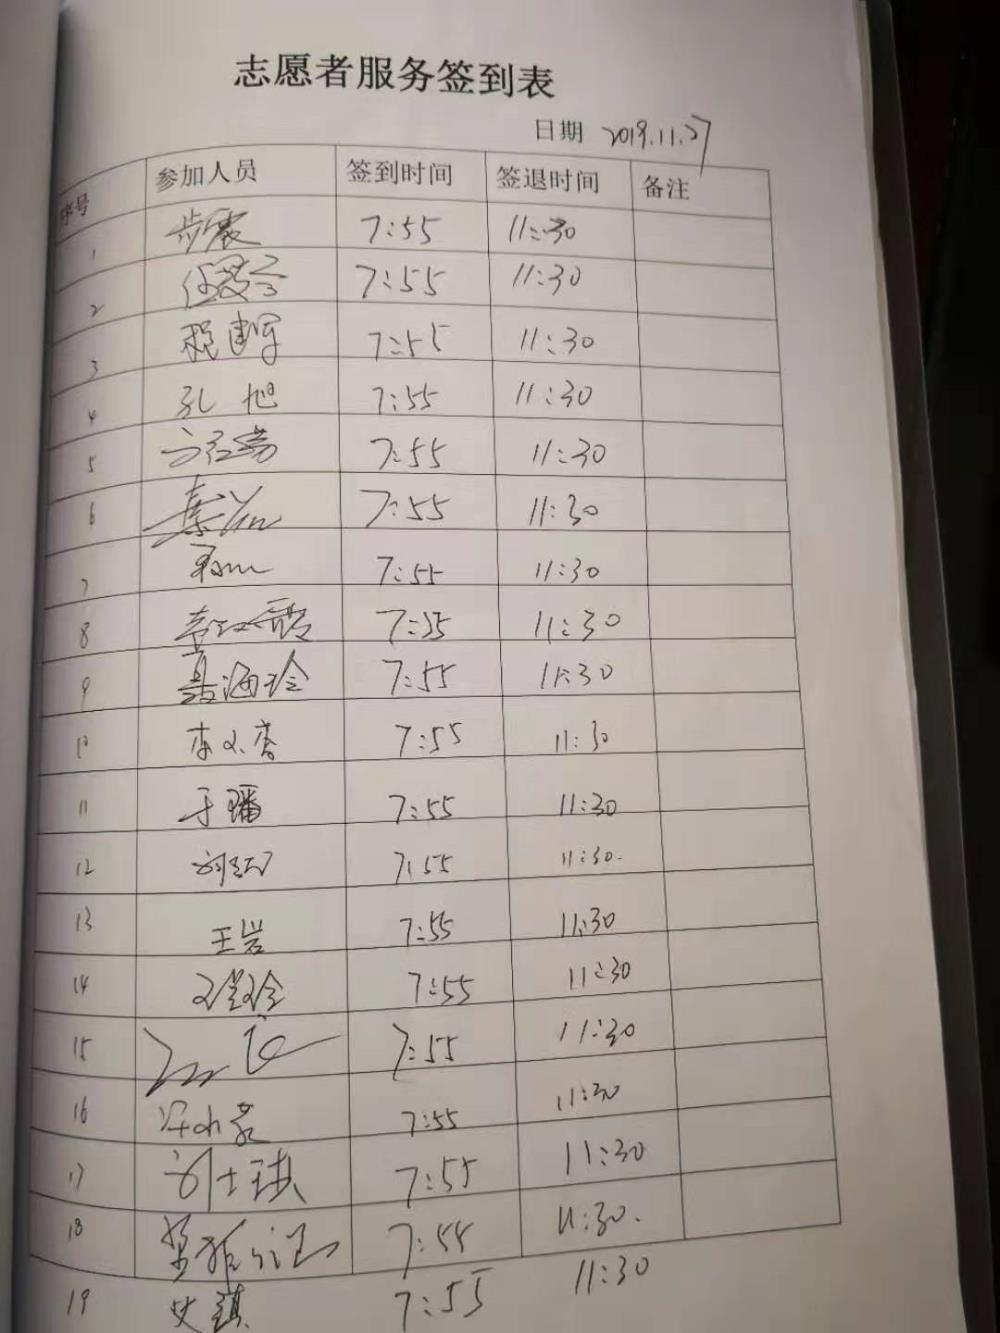 志愿者服务签到表
日期 2019.11.27
序号 参加人员 签到时间 签退时间 备注
1 步震 7:55 11:30
2 7:55 11:30
3 程建军 7:55 11:30
4 孔旭 7:55 11:30
5 7:55 11:30
6 秦岩 7:55 11:30
7 7:55 11:30
8 7:55 11:30
9 聂海玲 7:55 11:30
10 李小杏 7:55 11:30
11 于璠 7:55 11:30
12 7:55 11:30.
13 王岩 7:55 11:30
14 7:55 11:30
15 7:55 11:30
16 7:55 11:30
17 刘士琪 7:55 11:30
18 7:55 11:30.
19 艾镇 7:55 11:30